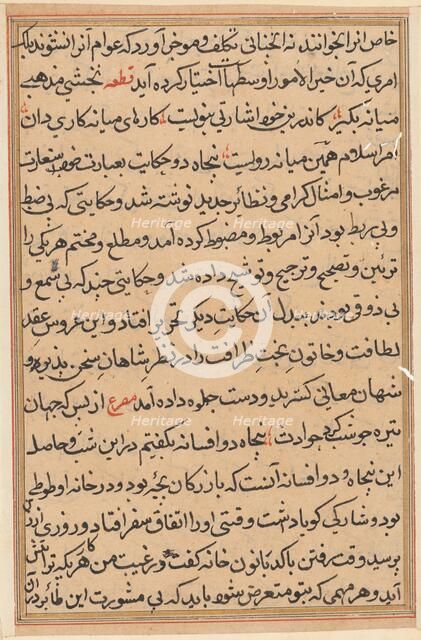 خاص انرا بخوانند نه انچنانی تکلف و موجز آورد که عوام آنرا نشنوند بلک
امری که آن خیر الامور اوسطها اختیار کرده آید قطعه نخشبی مذهبی
میانه بگیر کاندرین خود اشارتی نبویست کارهای میانه کاری دان
امر اسلام همین میانه رویست پنجاه دو حکایت بعبارت خوب
مرغوب و امثال کرامی و نظائر جدید نوشته شد و حکایتی که بی ضبط
و بی ربط بود آنرا مربوط و مضبوط کرده آمد و مطلع و مختم هر یکی را
تزئین و تصحیح و ترجیح و توشیح داده شد و حکایتی چند که بی سمع و
بی ذوق بود بدل آن حکایت دیکر تحریر افتاد و این عروس عقد
لطافت و خاتون تخت ظرافت را در نظر شاهان سخن پذیر و
شهان معانی کستر دید و دست جلوه داده آمد مصرع از بس که جهان
تیره جو شب کرد حوادث پنجاه دو افسانه بگفتیم در این شب و حاصل
این پنجاه و دو افسانه آنست که بازرکان بچه بود و در خانه او طوطی
بود و شارکی کویا داشت وقتی او را اتفاق سفر افتاد و روزی
بوسید وقت رفتن با کدبانون خانه کفت در غیبت من هر یکه ترا
آید و هر مهمی که بتو متعرض شود باید که بی مشورت این طائر
Heritage
Heritage
Heritage
Heritage
Heritage
Heritage
C